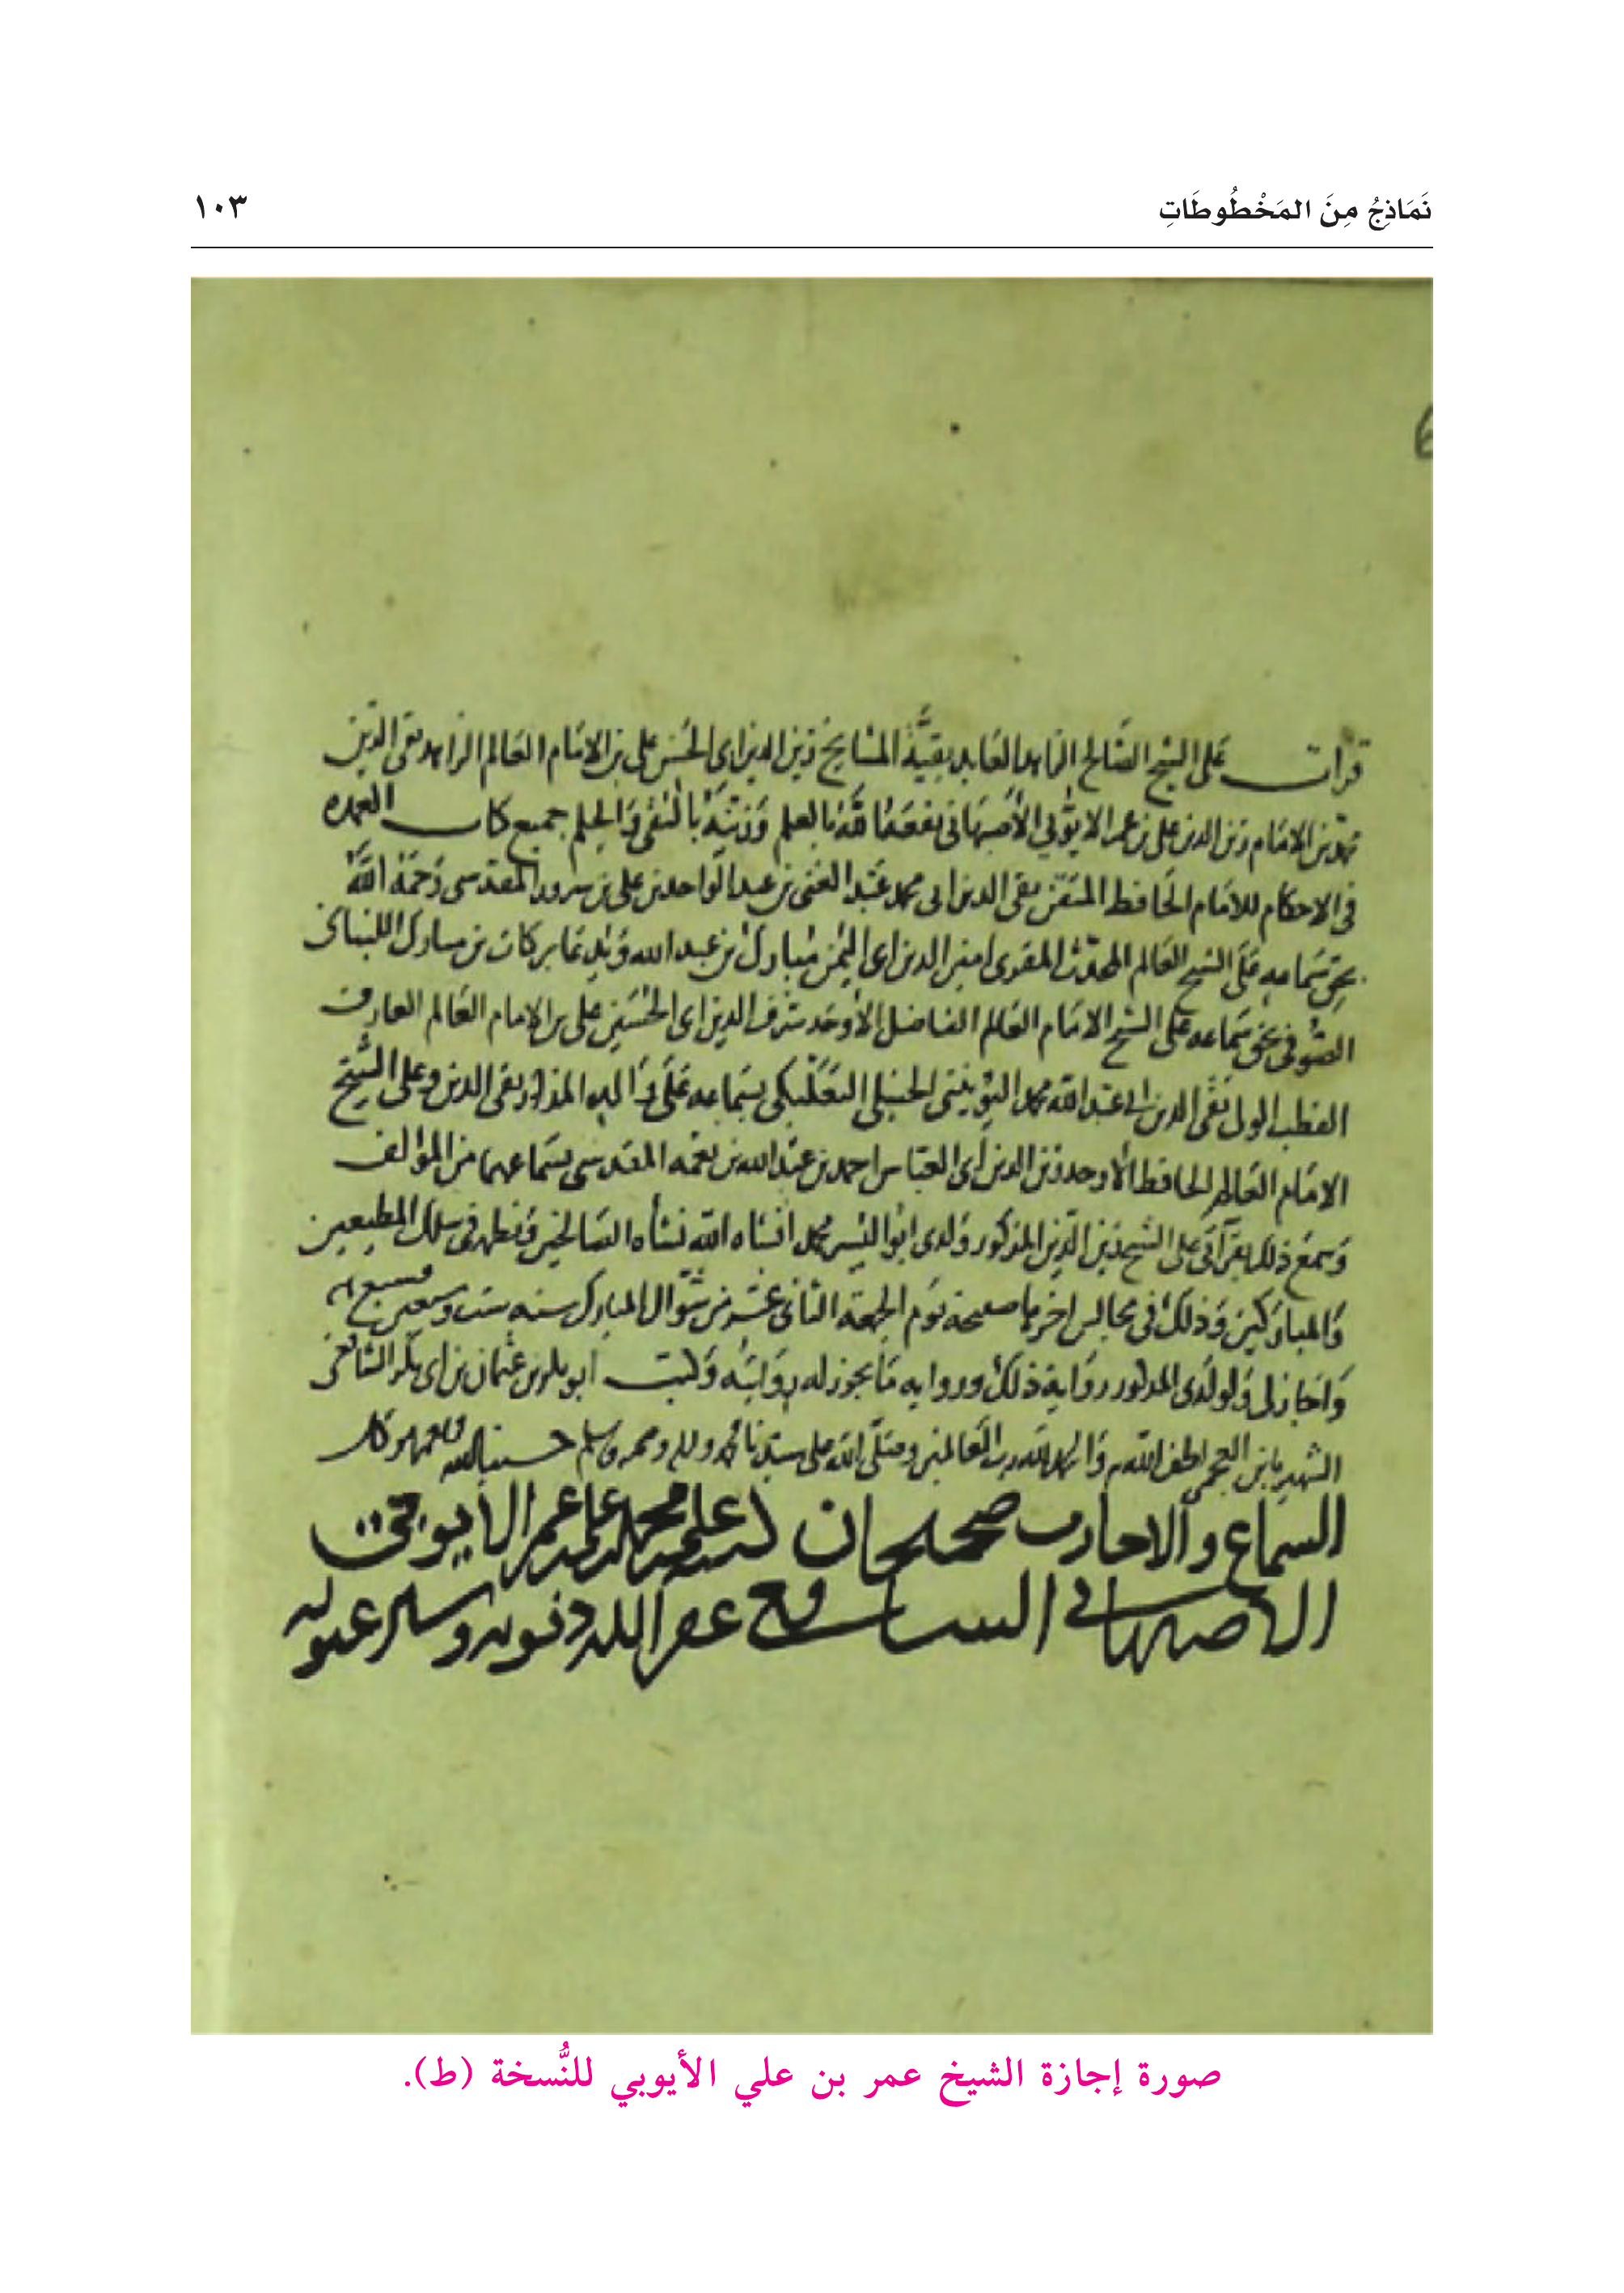 نَمَاذِجُ مِنَ المَخْطُوطَاتِ
١٠٣
قرات على الشيخ الصالح الزاهد العابد بقية المشايخ زين الدين ابى الحسن على بن الامام العالم الزاهد تقى الدين
محمد بن الامام زين الدين على بن عمر الايوبي الأصبهانى نفعه الله بالعلم وزينه بالتقى والحلم جميع كتاب العمده
فى الاحكام للامام الحافظ المتقن تقى الدين ابى محمد عبد الغنى بن عبد الواحد بن على بن سرور المقدسى رحمه الله
بحق سماعه على الشيخ العالم المحدث المقرى امين الدين ابى اليمن مبارك بن عبد الله بركات بن مبارك اللبنانى
الصوفى بحق سماعه على الشيخ الامام العالم الفاضل الأوحد شرف الدين ابى الحسين على بن الامام العالم العارف
القطب تقى الدين ابى عبد الله محمد اليونينى الحنبلى البعلبكى بسماعه على والده المذكور تقى الدين وعلى الشيخ
الامام العالم الحافظ الأوحد زين الدين أبى العباس احمد بن عبد الله بن نعمه المقدسى بسماعهما من المؤلف
وسمع ذلك بقرآتى على الشيخ زين الدين المذكور ولدى ابو اليسر محمد انشاه الله نشأه الصالحين ونظمه فى سلك المطيعين
والمباركين وذلك فى مجالس اخرها صبيحة يوم الجمعه الثانى عشر من شوال المبارك سنه ست وسبعين وسبع ما
واجاز لى ولولدى المذكور رواية ذلك وروايه ما يجوز له روايته وكتبت ابو بكر بن عثمان بن ابى بكر الشافعى
الشهير بابن العجمى لطف الله به والحمد لله رب العالمين وصلى الله على سيدنا محمد واله وصحبه وسلم حسبنا الله ونعم الوكيل
السماع والاجازه صحيحان كتبه على محمد على عمر الأيوبى
الأصبهانى الشافعى غفر الله ذنوبه وستر عيوبه
صورة إجازة الشيخ عمر بن علي الأيوبي للنُّسخة (ط).